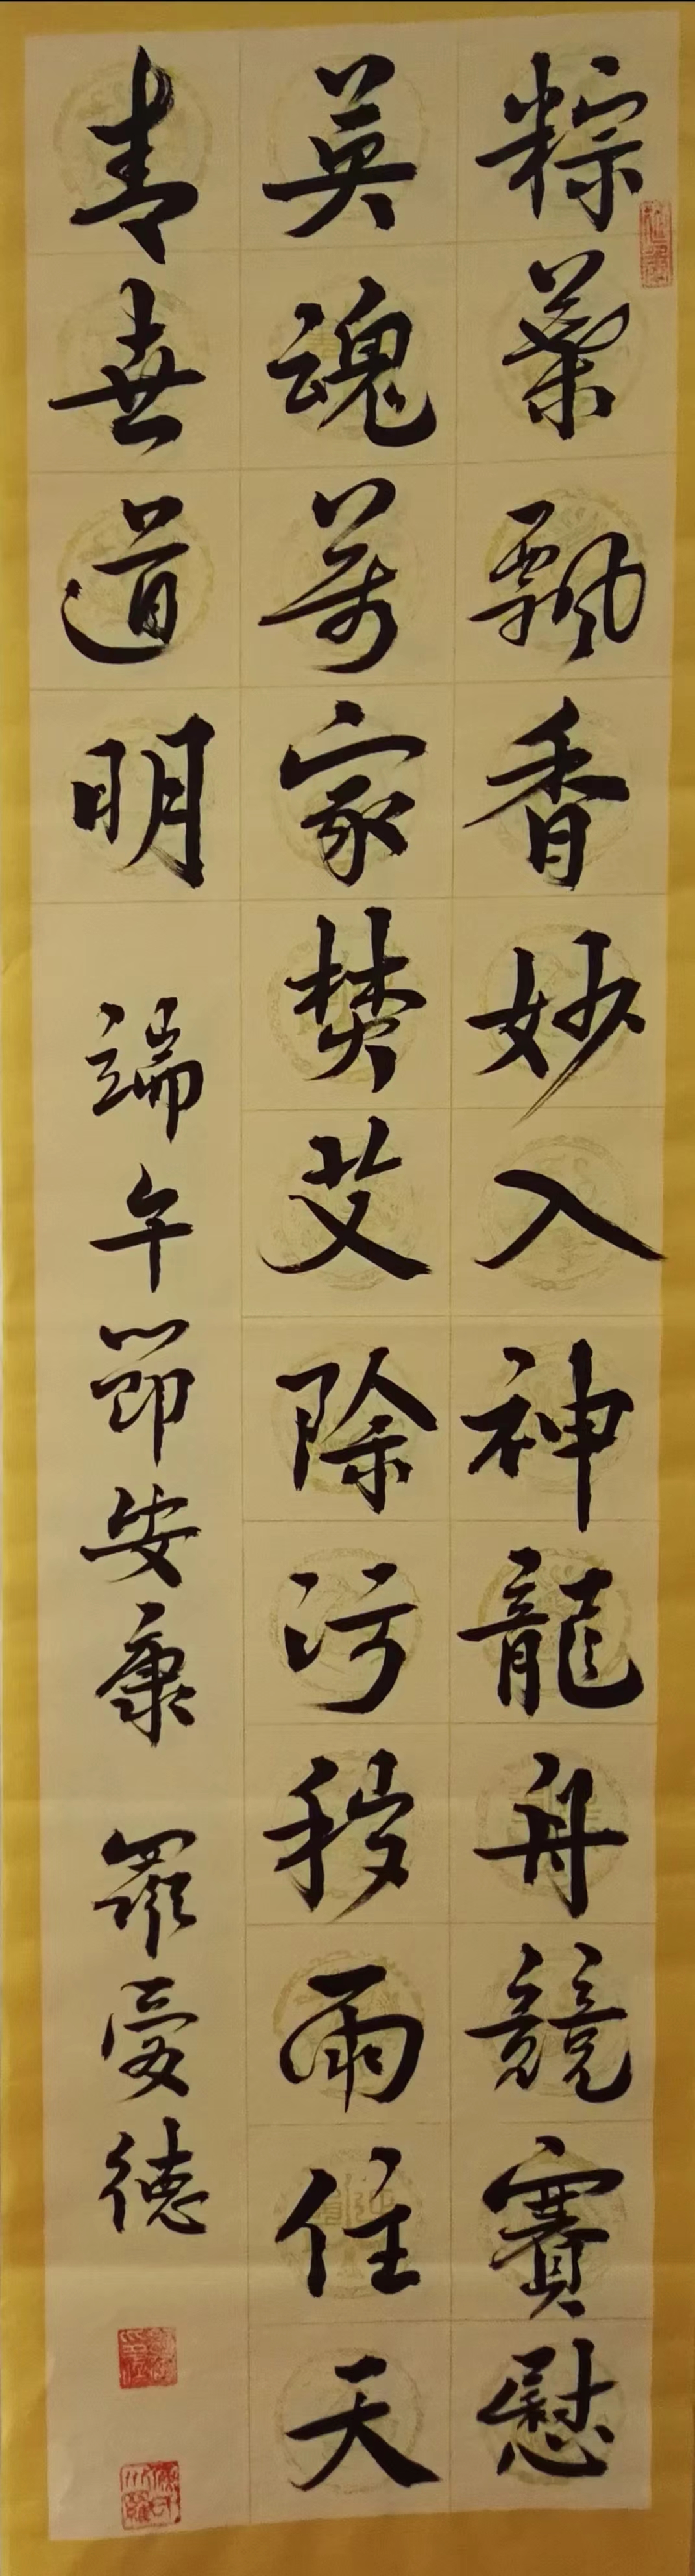 粽葉飄香妙入神龍舟競賽慰
英魂萬家焚艾除污穢雨住天
青世道明 端午節安康 羅愛德